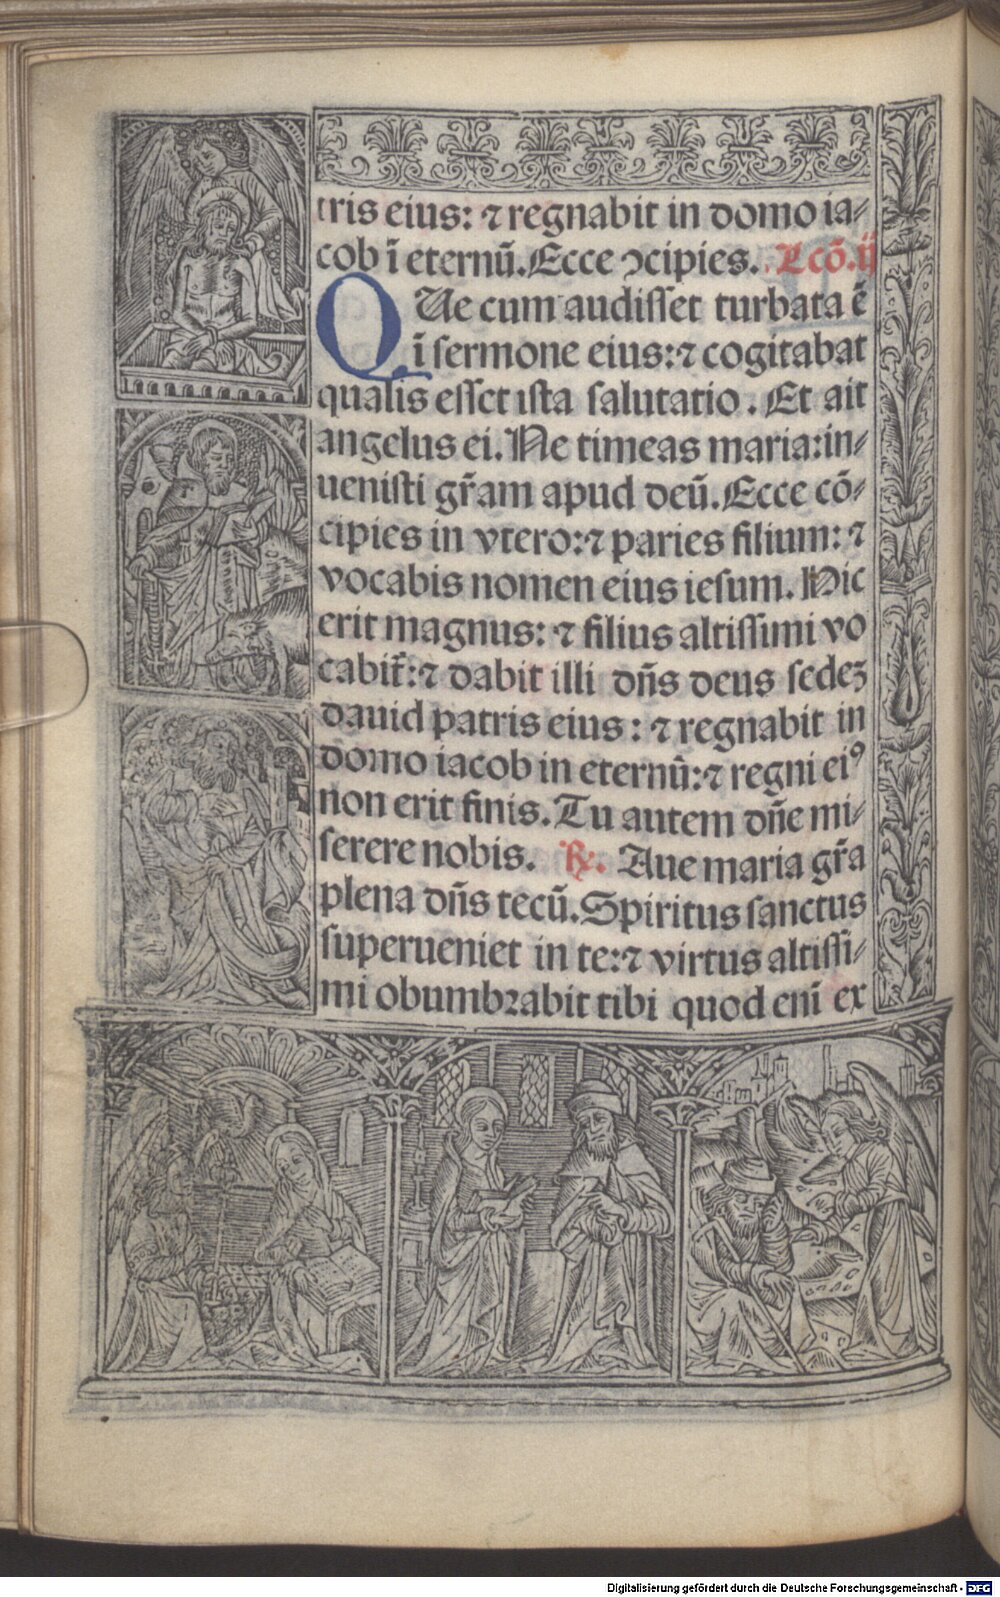 tris eius: ⁊ regnabit in domo ia⸗
cob ī eternū. Ecce ↄcipies. Lcō. ij
QUe cum audisset turbata ē
ī sermone eius: ⁊ cogitabat
qualis esset ista salutatio. Et ait
angelus ei. Ne timeas maria: in⸗
uenisti gr̄am apud deū. Ecce cō⸗
cipies in vtero: ⁊ paries filium: ⁊
vocabis nomen eius iesum. Hic
erit magnus: ⁊ filius altissimi vo
cabit̄: ⁊ dabit illi dn̄s deus sedeꝫ
dauid patris eius: ⁊ regnabit in
domo iacob in eternū: ⁊ regni eiꝰ
non erit finis. Tu autem dn̄e mi⸗
serere nobis. ℟. Aue maria gr̄a
plena dn̄s tecū. Spiritus sanctus
superueniet in te: ⁊ virtus altissi⸗
mi obumbrabit tibi quod eni̅ ex
Digitalisierung gefördert durch die Deutsche Forschungsgemeinschaft - DFG